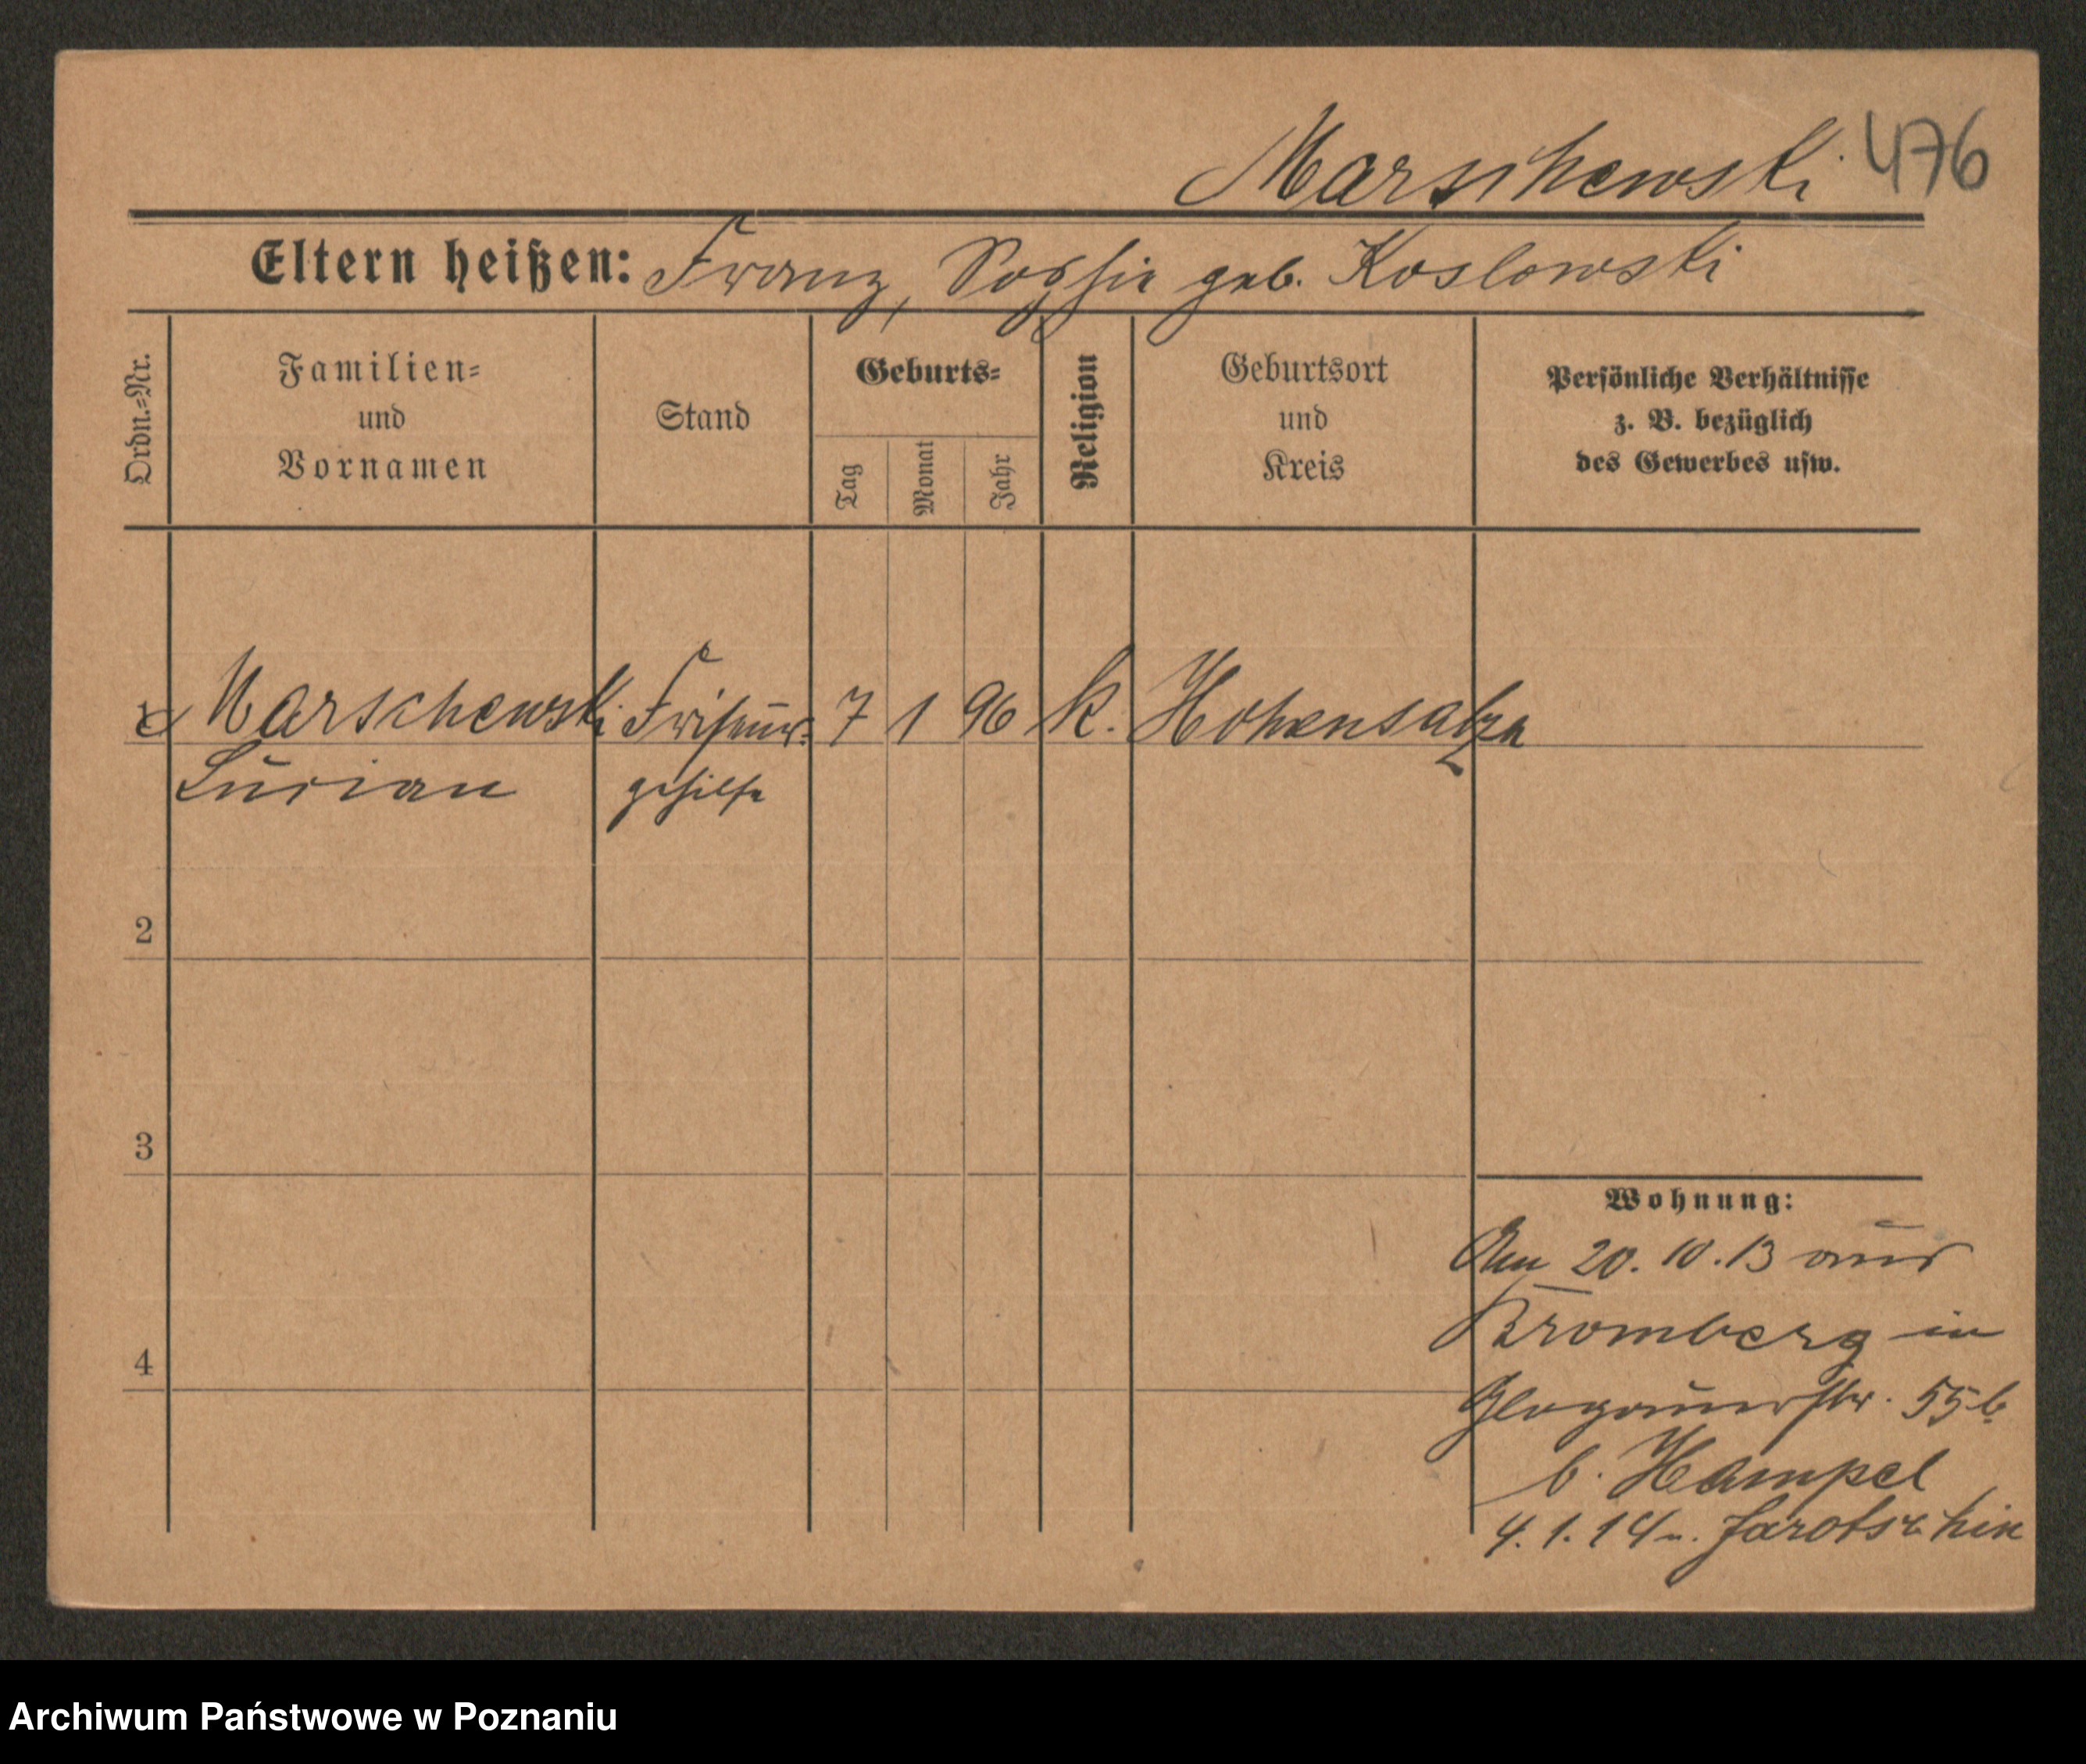 Marschewski 476
Eltern heißen: Franz, Sophie geb. Koslowski
Ordn.=Nr.
Familien=
und
Vornamen
Stand
Geburts=
Tag
Monat
Jahr
Religion
Geburtsort
und
Kreis
Persönliche Verhältnisse
z. B. bezüglich
des Gewerbes usw.
1 Marschewski Friseur= 7 1 96 k. Hohensalza
Lucian gehilfe
2
3
4
Wohnung:
Am 20.10.13 aus
Bromberg in
Glogauerstr. 55 b.
b. Hampel
4.1.14 n. Jarotschin
Archiwum Państwowe w Poznaniu